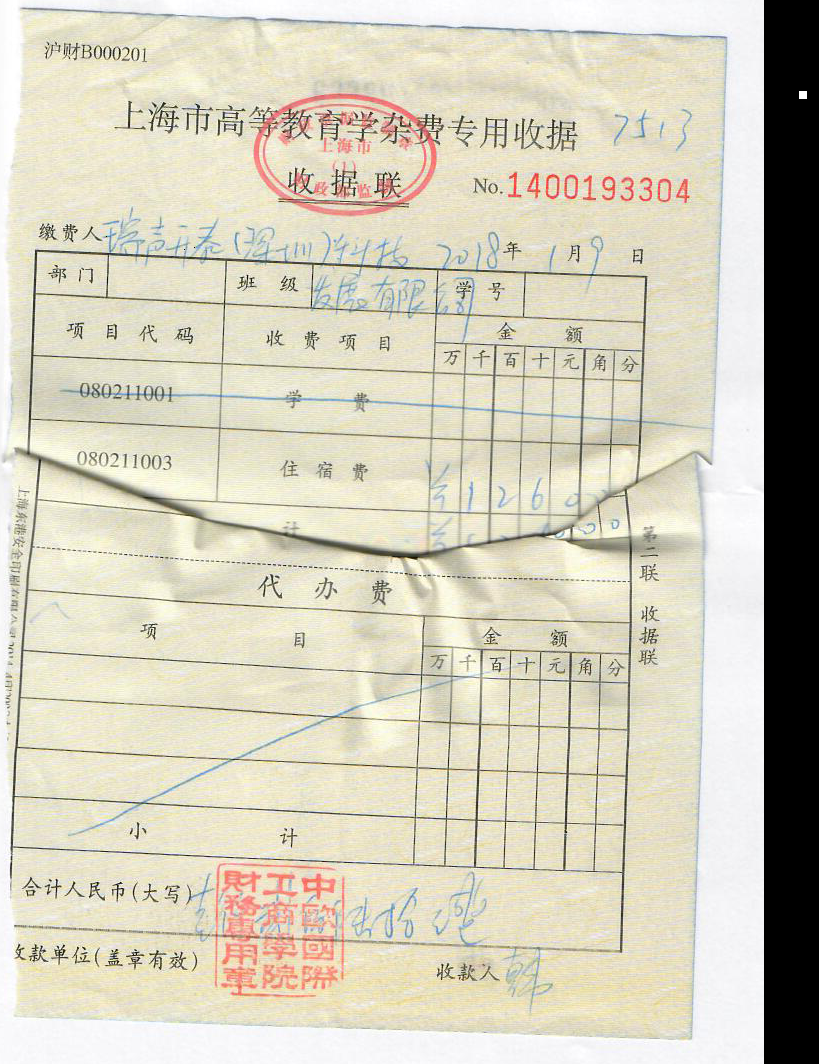 沪财B000201
上海市高等教育学杂费专用收据 7513
上海市
(1)
收据联 No.1400193304
缴费人 瑞声开泰(深圳)科技 2018年1月9日
发展有限公司
部门 班级 学号
项目代码 收费项目 金额
万千百十元角分
080211001 学费
080211003 住宿费 ¥12600
计
代办费
项目 金额
万千百十元角分
小计
合计人民币(大写) 陆拾 整
中欧國際
工商學院
財務專用章
收款单位(盖章有效) 收款人 韩
第二联 收据联
上海东港安全印刷有限公司